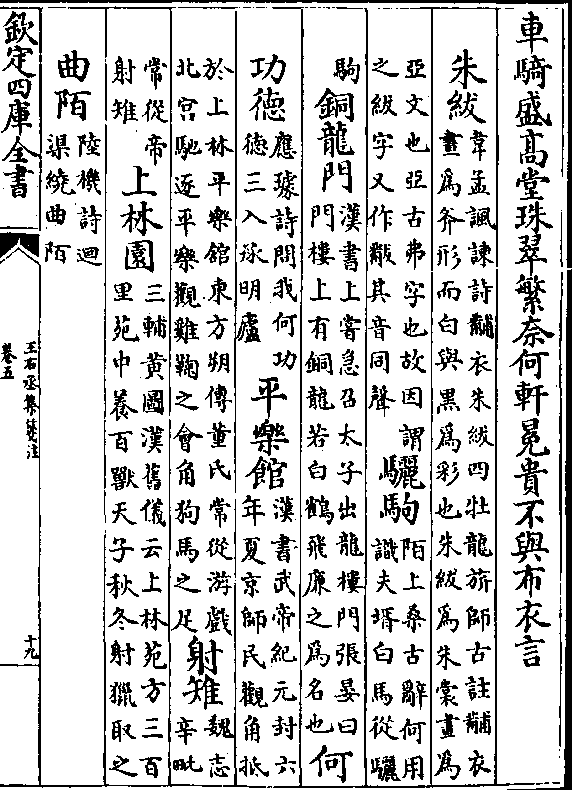 車騎盛高堂珠翠繁奈何軒冕貴不與布衣言
朱紱
韋孟諷諫詩黼衣朱紱四牡龍旂師古註黼衣
畫為斧形而白與黑為彩也朱紱為朱裳畫為
亞文也亞古弗字也故因謂
之紱字又作黻其音同聲
驪駒
陌上桑古辭何用
識夫壻白馬從驪
駒
銅龍門
漢書上嘗急召太子出龍樓門張晏曰
門樓上有銅龍若白鶴飛廉之為名也
何
功德
應璩詩問我何功
德三入承明廬
平樂館
漢書武帝紀元封六
年夏京師民觀角抵
於上林平樂館東方朔傳董氏常從游戲
北宮馳逐平樂觀雞鞠之會角狗馬之足
射雉
魏志
辛毗
常從帝
射雉
上林園
三輔黃圖漢舊儀云上林苑方三百
里苑中養百獸天子秋冬射獵取之
曲陌
陸機詩迴
渠繞曲陌
欽定四庫全書
王右丞集箋注
卷五
十九